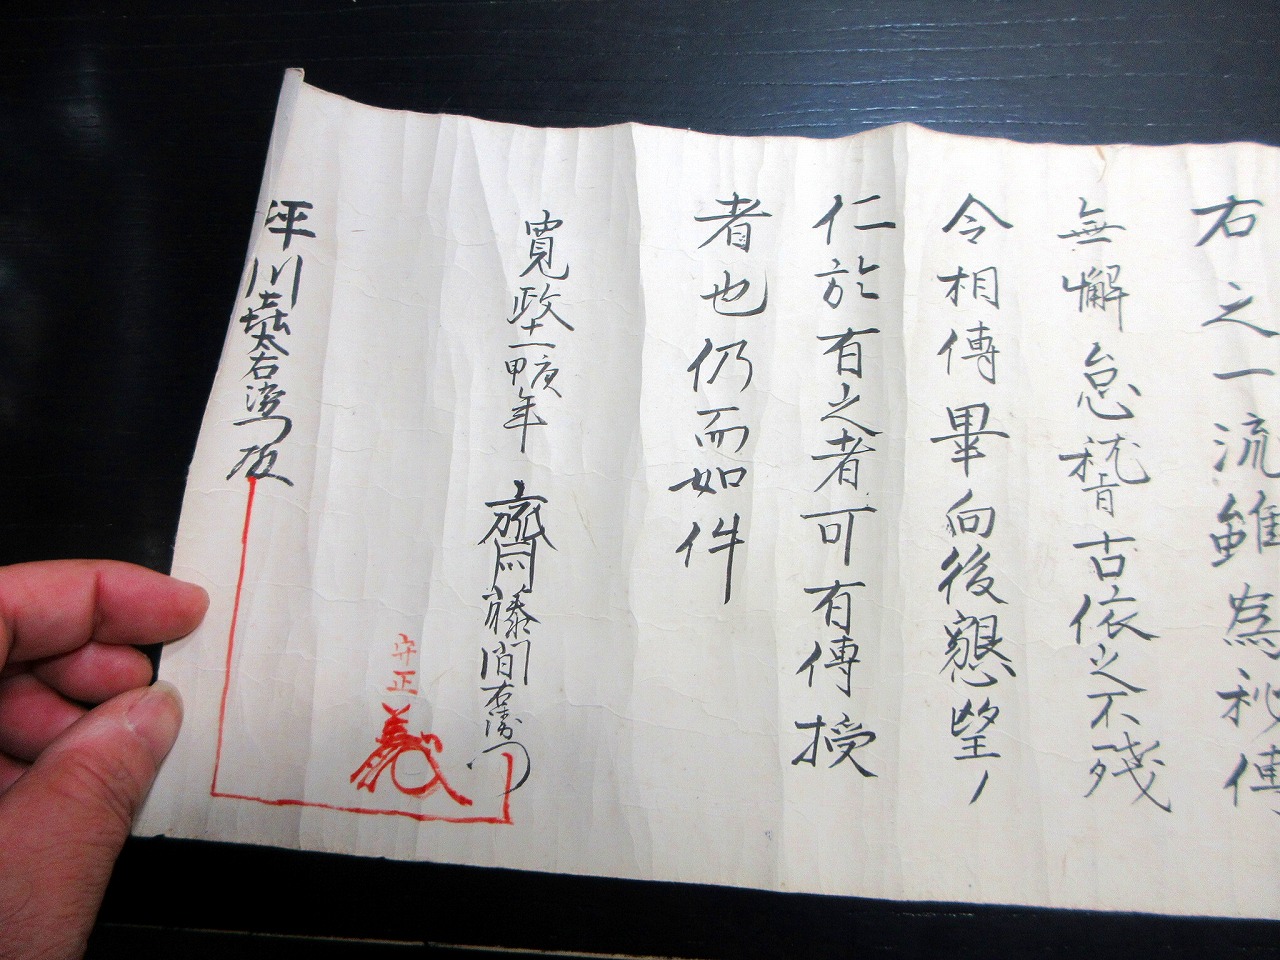 右之一流雖為秘傳
無懈怠稽古依之不残
令相傳畢向後懇望ノ
仁於有之者可有傳授
者也仍而如件
寛政十一庚申年
齋藤間右衛門
守正
平川喜太右衛門殿